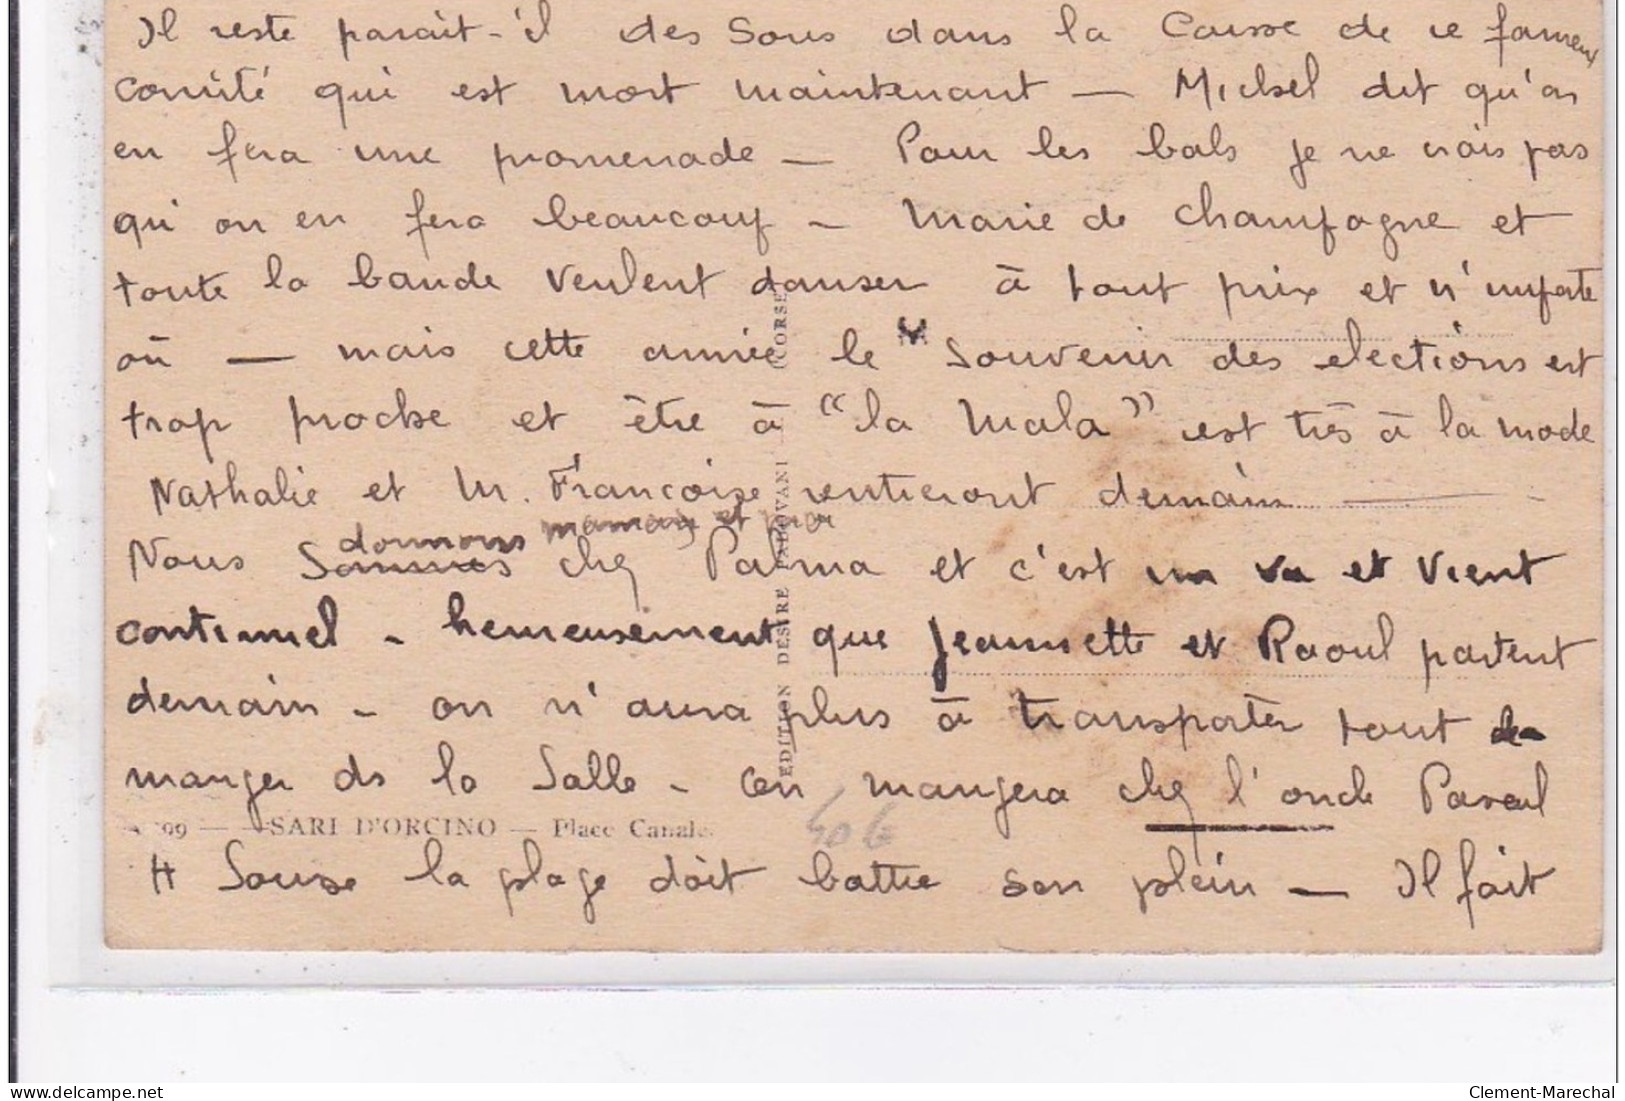 Il reste parait-il des Sous dans la Caisse de ce fameux
Comité qui est mort maintenant — Michel dit qu'on
en fera une promenade — Pour les bals je ne crois pas
qu'on en fera beaucoup — Marie de Champagne et
toute la bande veulent danser à tout prix et n'importe
où — mais cette année le Souvenir des elections est
trop proche et être à "la Mala" est très à la mode
Nathalie et M. Françoise rentreront demain
dormons maman et moi
Nous Sommes chez Palma et c'est un va et vient
continuel - heureusement que Jeannette et Raoul partent
demain - on n'aura plus à transporter tout le
manger ds la Salle - On mangera chez l'oncle Pascal
99 — SARI D'ORCINO — Place Canale
40€
A Sousse la plage doit battre son plein — Il fait
EDITION DESIRE PADOVANI (CORSE
Clement-Marechal
https://www.delcampe.net